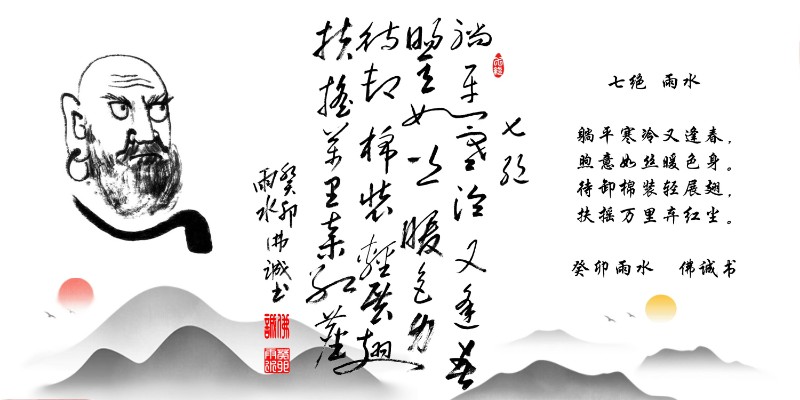 躺平寒冷又逢春
煦意如丝暖色身
待卸棉装轻展翅
扶摇万里弃红尘
七绝
癸卯雨水佛诚书
七绝 雨水
躺平寒冷又逢春，
煦意如丝暖色身。
待卸棉装轻展翅，
扶摇万里弃红尘。
癸卯雨水 佛诚书